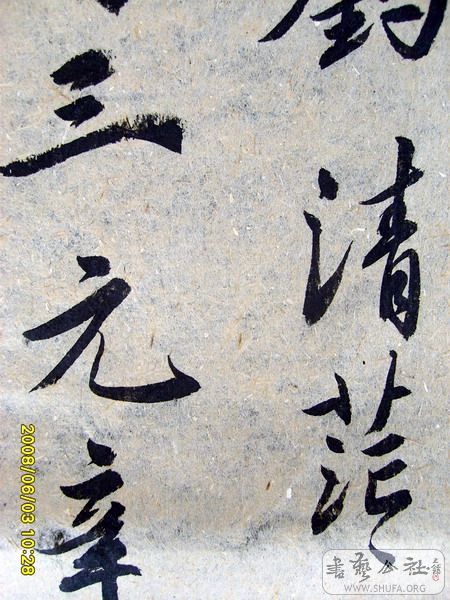 清茫
三元辛
2008/06/03 10:28
書藝公社
WWW.SHUFA.ORG